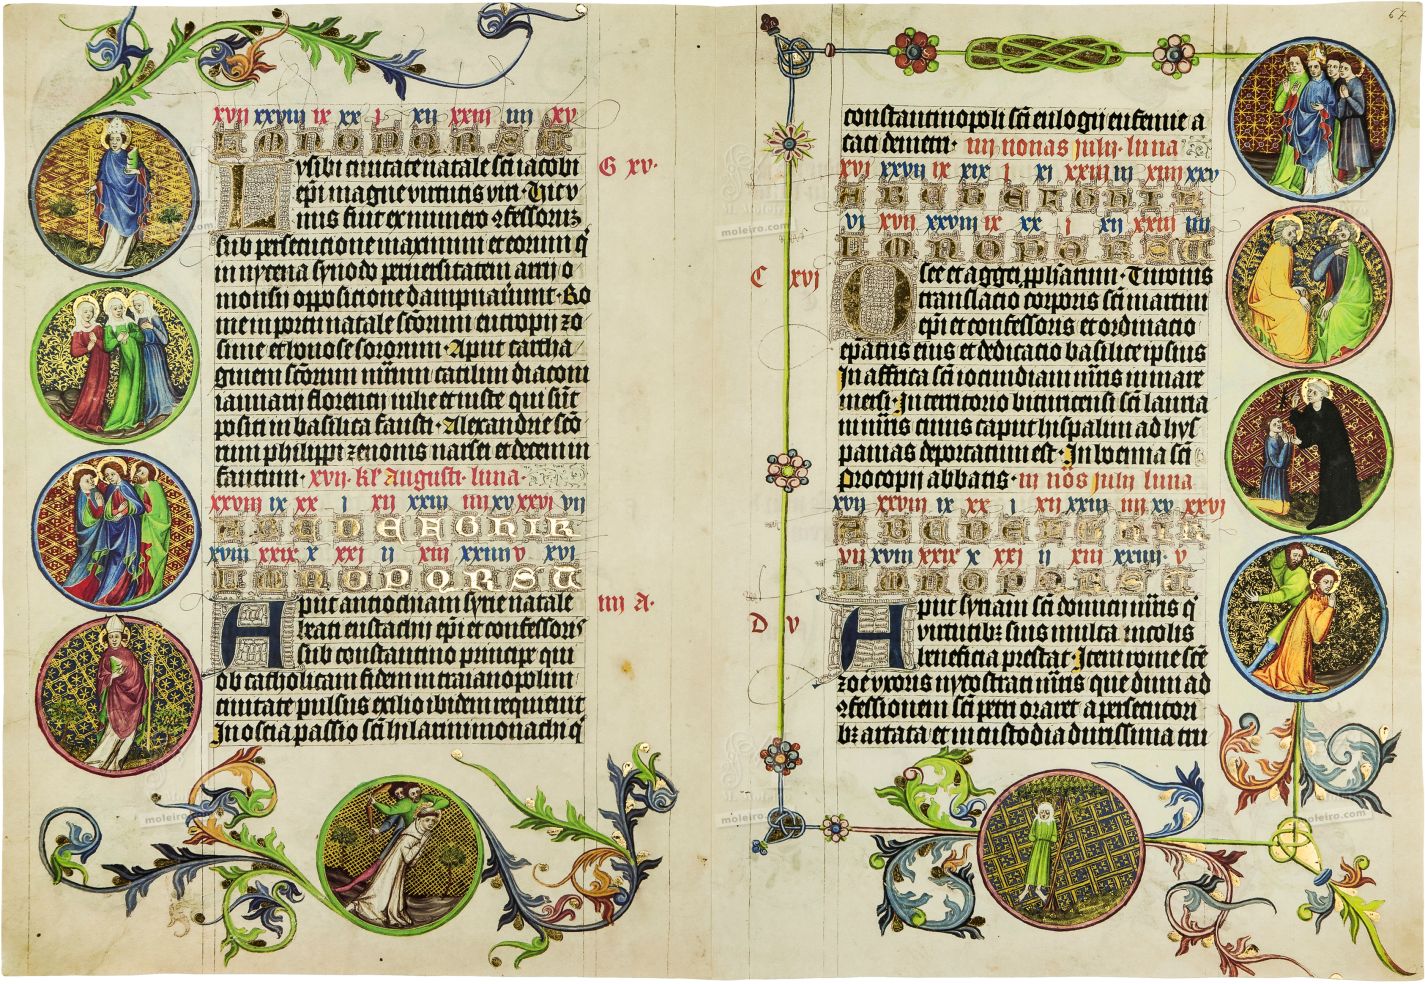 xvij xxviij ix xx j xij xxiij iiij xv
L M N O P Q R S T
Lysibi civitate natale sci iacobi
epi magne virtutis viri · Hic v
nus fuit ex numero ꝯfessorum
sub persecutione maximini et eorum q
in nycena synodo perversitatem arrij o
mousij opposicione dampnaverunt · Ro
me in portu natale scorum eutropij zo
sime et bonose sororum · Aput cartha
ginem scorum mrum catilini diaconi
ianuarij florencij iulie et iuste qui sut
positi in basilica fausti · Alexandrie sco
rum philippi zenonis narsei et decem in
fantium · xvij · kl' Augusti · luna ·
xxviij ix xx j xij xxiij iiij xv xxvi vij
A B C D E F G H I K
xviij xxix x xxj ij xiij xxiiij v xvj
L M N O P Q R S T
Aput antiochiam syrie natale
beati eustachij epi et confessoris
sub constantino principe qui
ob catholicam fidem in traianopolim
civitate pulsus exilio ibidem requievit
In ostia passio sci hilarini monachi q
G xv ·
iiij A ·
67
constantinopoli sci eulogij eufemie a
taci demetri · iiij nonas julij · luna
xvj xxvij ix xix j xj xxiij iij xiiij xxv
A B C D E F G H I K
vj xvij xxviij ix xx j xij xxiij iiij
L M N O P Q R S T
Osee et aggei pphatarum · Turonis
translacio corporis sci martini
epi et confessoris et ordinacio
epatus eius et dedicacio basilice ipsius
In affrica sci iocundiani mris in mare
mersi · In territorio bituricensi sci lauria
ni mris cuius caput hispalim ad hys
panias deportatum est · In boemia sci
Procopij abbatis · iij nos julij luna
xvij xxviij ix xx j xij xxiij iiij xv xxvj
A B C D E F G H I K
vij xviij xxix x xxj ij xiij xxiiij v
L M N O P Q R S T
Aput syriam sci domicij mris q
virtutibz suis multa incolis
beneficia prestat · Item rome sce
zoe vxoris nycostrati mris que dum ad
ꝯfessionem sci petri oraret a persecutori
bz artata et in custodia durissima tru
C xvj
D v
moleiro.com
moleiro.com
moleiro.com
moleiro.com
moleiro.com
moleiro.com